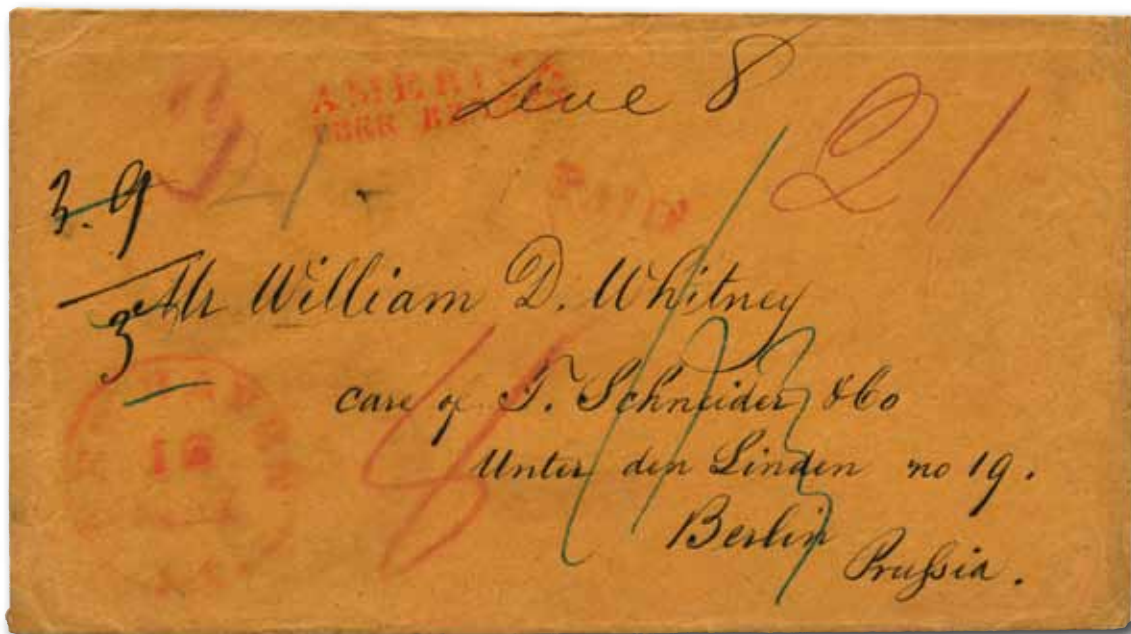 AMERICA
UBER
8
21
PAID
3.9
3
Mr William D. Whitney
care of T. Schneider & Co
Unter den Linden no 19.
Berlin
Prussia.